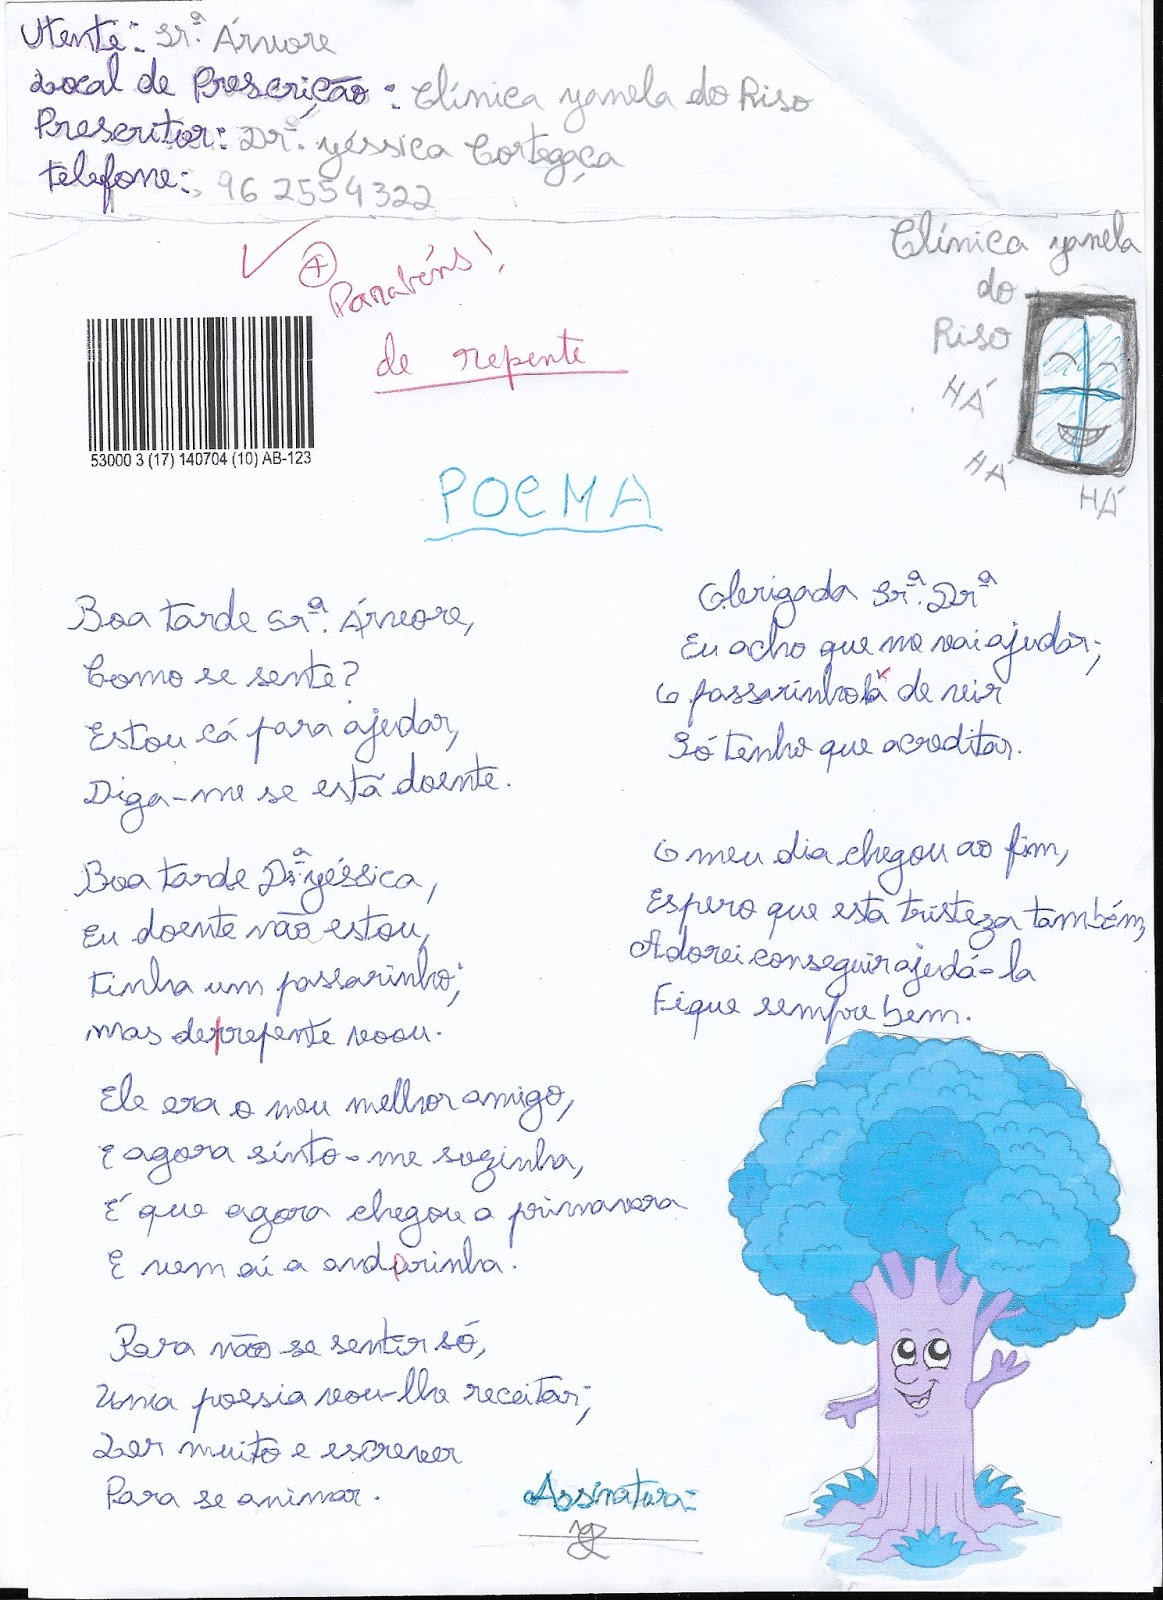 Utente: Sr.ª Árvore
Local de Prescrição: Clínica Yanela do Riso
Prescritor: Dr.ª Yéssica Cortegaça
telefone: 962554322
Clínica Yanela
do
Riso
HÁ
HÁ
HÁ
+
Parabéns!
de repente
53000 3 (17) 140704 (10) AB-123
POEMA
Boa tarde Sr.ª Árvore,
Como se sente?
Estou cá para ajudar,
Diga-me se está doente.
Boa tarde Dr.ª Yéssica,
Eu doente não estou,
tinha um passarinho;
mas derrepente voou.
Ele era o meu melhor amigo,
E agora sinto-me sozinha,
É que agora chegou a primavera
E vem aí a andorinha.
Para não se sentir só,
Uma poesia vou-lhe receitar;
Ler muito e escrever
Para se animar.
Obrigada Sr.ª Drª
Eu acho que me vai ajudar;
O passarinho á de vir
Só tenho que acreditar.
O meu dia chegou ao fim,
Espero que esta tristeza também,
Adorei conseguir ajudá-la
Fique sempre bem.
Assinatura: